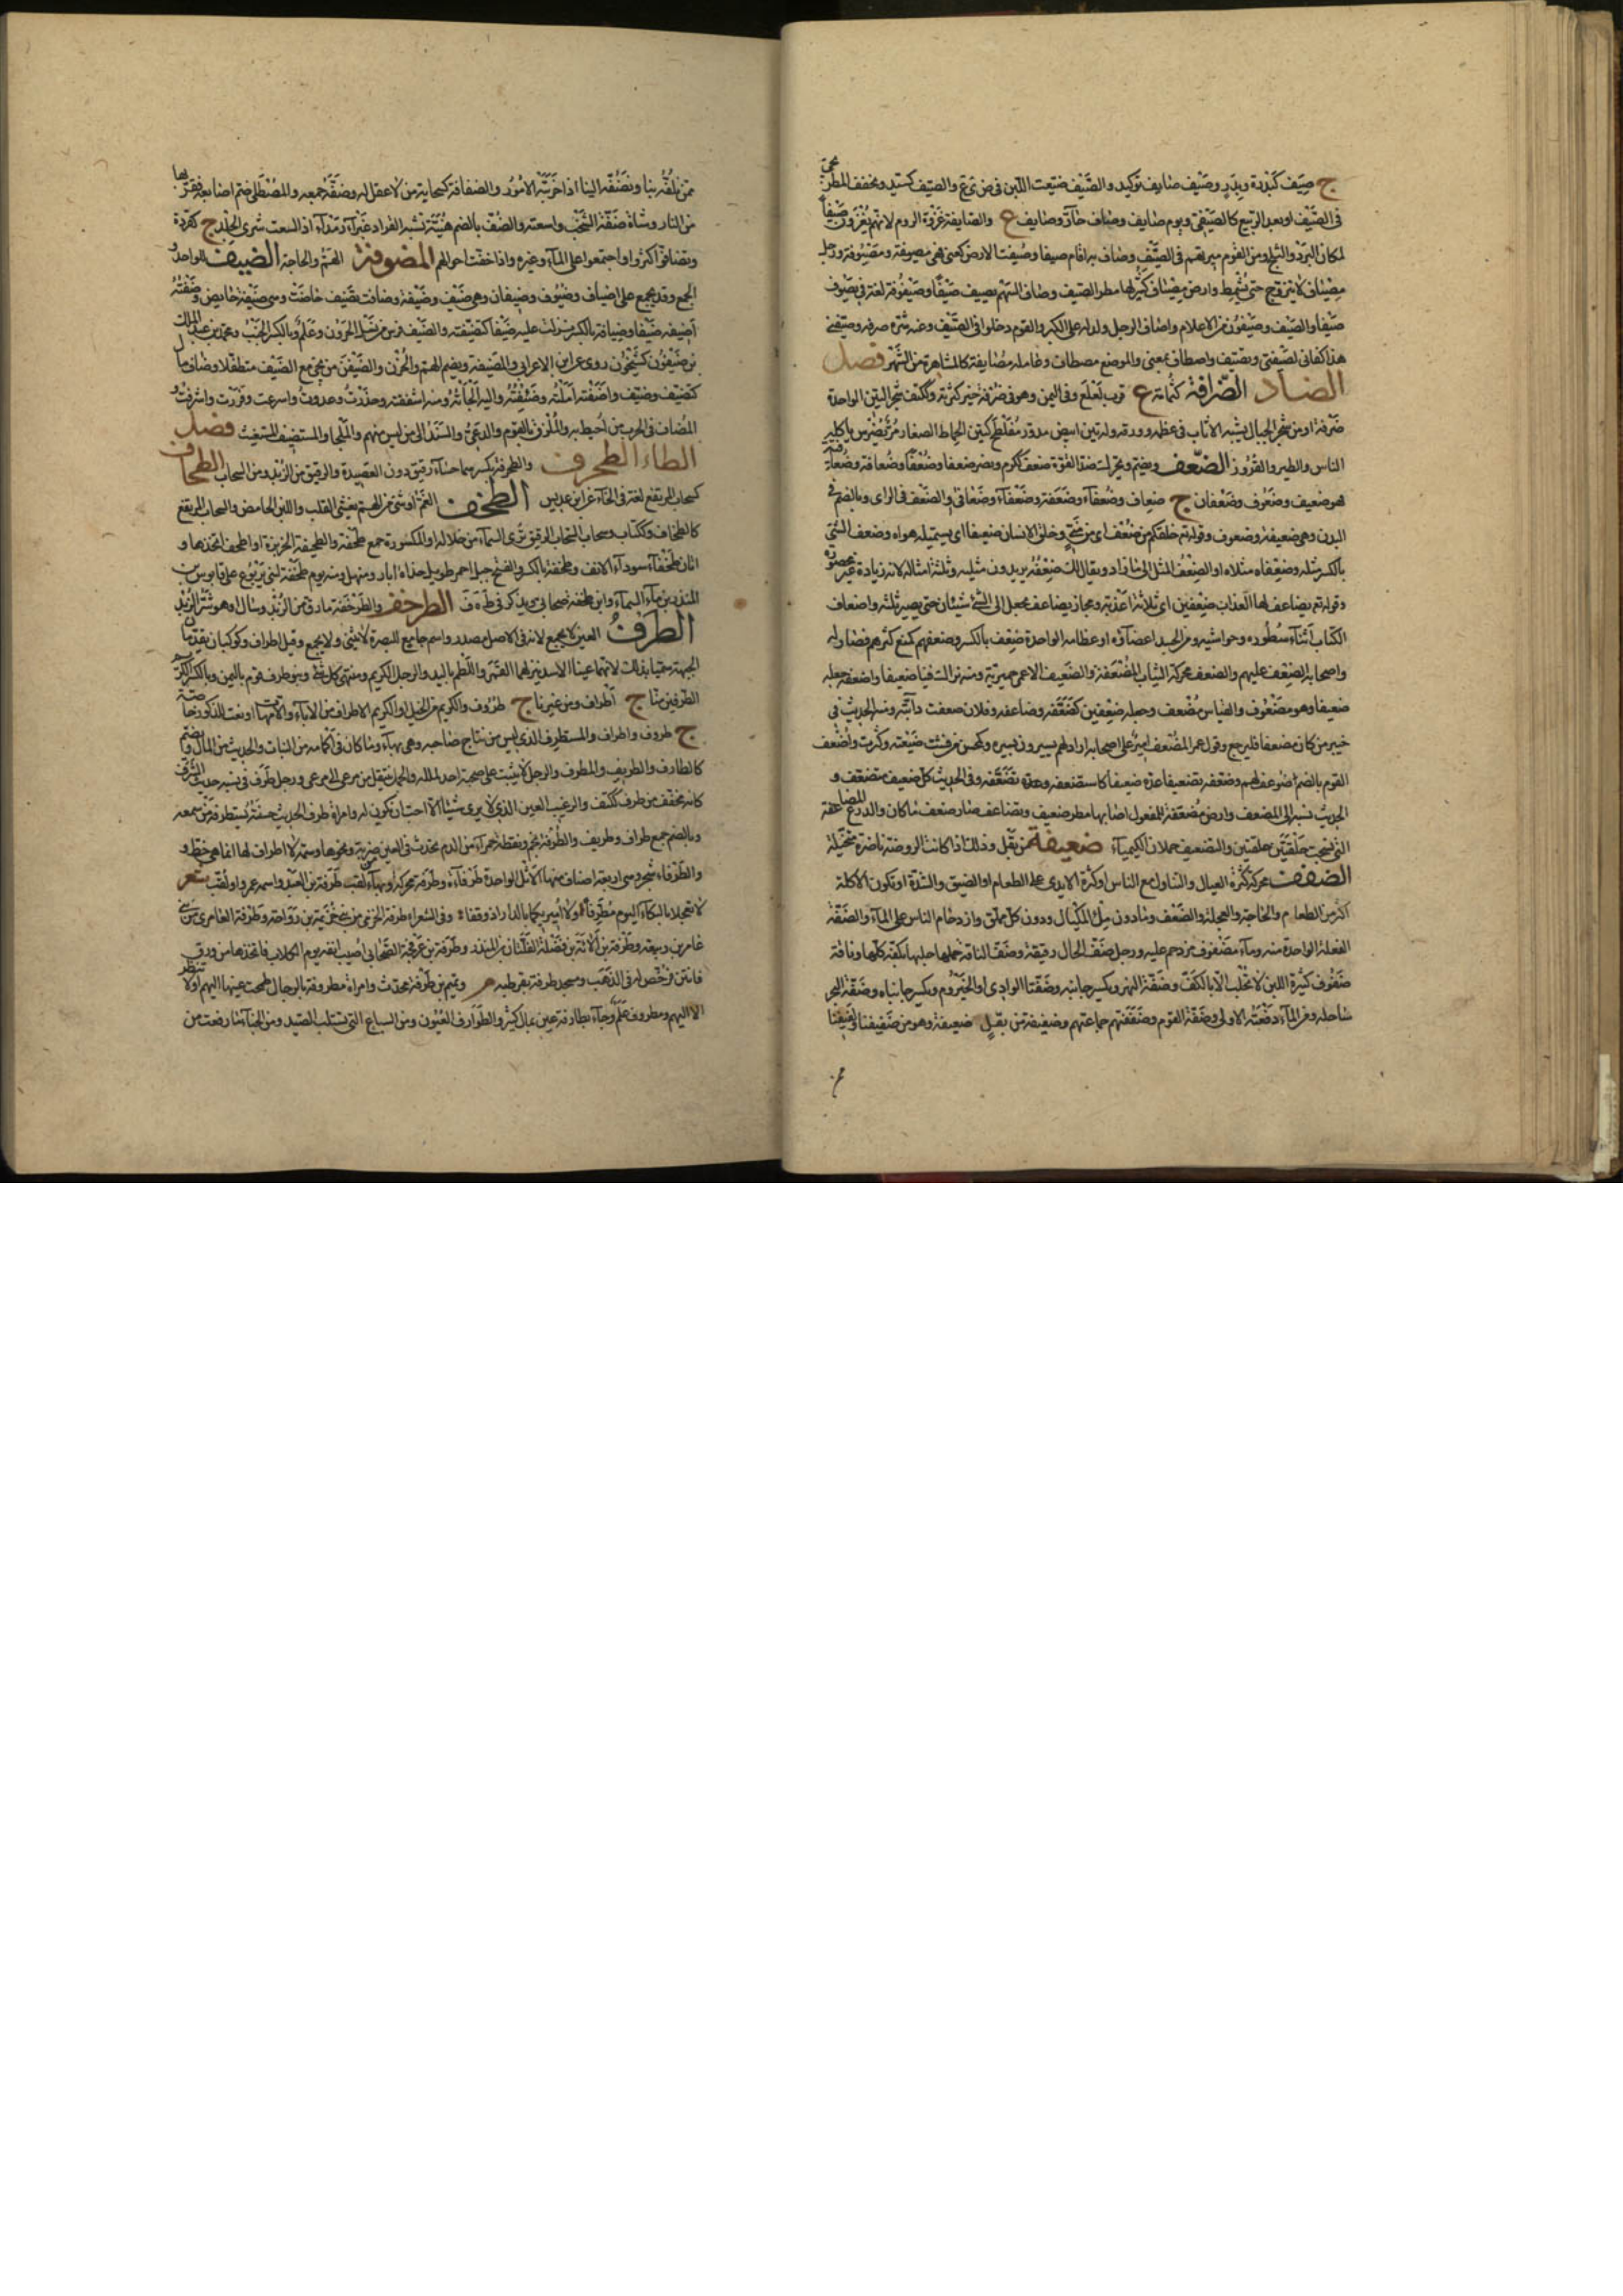 ج صِيَف كبَدرة وبِدَر وصَيْف صايف توكيد والصَّيْف ضيّعت اللبن في ض ي ع والصيّف كسيّد ويخفف المطر
في الصَّيْف او بعد الربيع كالصَيْفي ويوم صايف وصاف حارّ وصايف ع والصايفة غزوة الروم لانهم يغزون صيفًا
لمكان البرد والثلج ومن القوم ميرتهم في الصَّيْف وصاف به اقام صيفا وصيفت الارض كعني فهي مصيفة ومصيوفة ورجل
مِصْياف لا يتزوج حتى يشمط وارض مِصْياف كثر لها مطر الصيف وصاف السهم يصيف صَيْفًا وصَيْفُوفة لغة في يصوف
صَيْفا والصَيف وصَيْفُون من الاعلام واصاف الرجل ولد له على الكبر والقوم دخلوا في الصَّيْف وعنه شره صرفه وصيّفني
هذا كفاني لصَيْفتي وتصيّف واصطاف بمعنى والموضع مصطاف وعامله مصايفة كالمشاهرة من الشهر فصل
الضاد الضرافة كثمامة ع قرب لعلع وفي اليمن وهو في ضرفة خير كثرته وككتف شجر التين الواحدة
ضَرِفة او من شجر الجبال يشبه الاثاب في عظمه وورقه وله تين ابيض مدوّر مُفَلْطَح كتين الحماط الصغار مُرّ يُضرّس ياكله
الناس والطير والقرود الضعف ويضم ويحرك ضد القوة ضعف ككرم ونصر ضعفا وضُعْفًا وضُعافة وضعافية
فهو ضعيف وضَعُوف وضَعْفان ج ضعاف وضُعفآء وضَعَفة وضَعْفآء وضَعافى او الضَعْف في الراى وبالضم في
البدن وهي ضعيفة وضعوف وقوله تع خلقكم من ضَعْف اي من مَنِيّ وخلق الانسان ضعيفا اي يستميله هواه وضعف الشئ
بالكسر مثله وضعفاه مثلاه او الضِعْف المثل الى ما زاد ويقال لك ضِعْفه يريدون مثليه وثلثة امثاله لانه زيادة غير محصورة
وقوله تع يضاعف لها العذاب ضعفين اي ثلاثة اعذبة ومجاز يضاعف يجعل الى الشئ شيئان حتى يصير ثلثة واضعاف
الكتاب اثنآء سُطُوره وحواشيه ومن الجسد اعضاؤه او عظامه الواحدة ضِعف بالكسر وضعفهم كمنع كثرهم فصار له
واصحابه الضعف عليهم والضعف محركة الثياب المُضْعَفة والضعيف الاعمى حميرية ومنه لنراك فينا ضعيفا واضعفه جعله
ضعيفا وهو مَضْعُوف والقياس مُضْعف وجعله ضعفين كضَعَّفه وضاعفه وفلان ضعفت دابّته ومنه الحديث في
خيبر من كان مضعفا فليرجع وقول عمر المُضْعف امير على اصحابه اراد انهم يسيرون بسيره وكمحسن من فشت ضيعته وكثرت واُضْعف
القوم بالضم اي ضوعف لهم وضعّفه تضعيفا عدّه ضعيفا كاستضعفه وتضعّفه وفي الحديث كل ضعيف متضعّف و
الحديث نسبه الى الضعف وارض مُضَعَّفة للمفعول اصابها مطر ضعيف وتضاعف صار ضعف ما كان والدرع المضاعفة
التي نسجت حلقتين حلقتين والتضعيف حملان الكيميآء ضغيفة من بَقْل وذلك اذا كانت الروضة ناضرة متخيّلة
الضفف محركة كثرة العيال والتناول مع الناس او كثرة الايدي على الطعام او الضيق والشدّة او تكون الاكلة
اكثر من الطعام والحاجة والعجلة والضَعْف وما دون مِلْ المكيال ودون كل مملوّ وازدحام الناس على المآء والضَفّة
الفعلة الواحدة منه ومآء مَضْفُوف مزدحم عليه ورجل ضَفّ الحال رقيقه وضَفّ الناقة حلبها بكفّه كلها وناقة
ضَفُوف كثيرة اللبن لا تُحْلب الّا بالكفّ وضَفّة النهر ويكسر جانبه وضَفّتا الوادي او الحَيْزُوم ويكسر جانباه وضَفّة البحر
ساحله ومن المآء دفعته الاولى وضَفّة القوم وضَفَفَتهم جماعتهم وضفيفة من بقل ضغيفة وهو من ضَفيفنا ولفيفنا
ممن نلفّه بنا ونضفّه الينا اذا حزبتنا الامور والضفافة كسحابة من لا عقل له وضفّه جمعه والمضطفّ ضم اصابعه فقرّبها
من النار وشاة ضَفّة الشَّخْب واسعته والضُفّ بالضم هُنَيّة تشبه القراد غبرآء رمدآء اذا لسعت شرى الجلد ج كقردة
وتضافوا كثروا واجتمعوا على المآء وغيره واذا خفّت احوالهم المضوفة الهم والحاجة الضيف للواحد و
الجمع وقد يجمع على اضياف وضُيُوف وضِيفان وهي ضَيْف وضَيْفة وضافت تضيف حاضت وهي ضَيْفة حايض وضِفْتُه
أضيفه ضَيْفا وضيافة بالكسر نزلت عليه ضيفا كتضيّفته والضَيْف فرس من نسل الحَرُون وعَلَم وبالكسر الجَنْب ومحمد بن عبد الملك
بن ضَيْفُون كشَيْخُون روى عن ابن الاعرابي والمَضيفة ويضم الهم والحُزْن والضَّيْفَن من يجئ مع الضَّيف متطفّلا وضاف مال
كتضيّف وضيّف واضَفْته املته وضَيّفته واليه الجأته ومنه اشفقته وحذرت وعدوت واسرعت وفررت واشرفت و
المُضاف في الحرب من اُحيط به والمُلْزَق بالقوم والدعيّ والمسند الى من ليس منهم والملجا والمستضيف المستغيث فصل
الطاء الطحرف والطحرفة بكسرهما حسآء رقيق دون العصيدة والرقيق من الزُبْد ومن السحاب الطحاف
كسحاب المرتفع لغة في الخآء عن ابن عديس الطخف الغم او شئ من الهم يغشى القلب واللبن الحامض والسحاب المرتفع
كالطخاف وككتاب وسحاب السحاب الرقيق ترى السمآء من خلاله او المكسورة جمع طخفة والطخيفة الخزيرة واطخف اتخذها و
اتان طَخْفآء سودآء الانف وطخفة بالكسر والفتح جبل احمر طويل حذاه ابار ومنهل ومنه يوم طخفة لبني يَرْبُوع على قابوس بن
المنذر بن مآء السمآء وابن طخفة صحابي ويذكر في ط ه ف الطرخف والطرخفة ما رقّ من الزُبْد وسال او هو شَرّ الزُبْد
الطرف العين لا يجمع لانه في الاصل مصدر واسم جامع للبصر لا يثنى ولا يجمع وقيل اطراف وكوكبان يقدمان
الجبهة سمّيا بذلك لانهما عينا الاسد ينزلهما القمر واللطم باليد والرجل الكريم ومنتهى كل شئ وبنو طرف قوم باليمن وبالكسر الكريم
الطرفين منّا ج أطراف ومن غيرنا ج طُرُوف والكريم من الخيل او الكريم الاطراف من الابآء والامّهات او نعت للذكور خاصّة
ج طروف واطراف والمستطرف الذي ليس من نتاج صاحبه وهي بهآء وما كان في اكمامه من النبات والحديث من المال ويضم
كالطارف والطريف والمطرف والرجل لا يثبت على صحبة احد لملله والجمل ينتقل من مرعى الى مرعى ورجل طَرِف في نسبه حديث الشرف
كانه مخفف من طرف ككتف والرغيب العين الذي لا يرى شيئا الا احب ان تكون له وامراة طرف الحديث حسنته يستطرفه من سمعه
وبالضم جمع طراف وطريف والطَرْفة نجم ونقطة حمرآء من الدم تحدث في العين من ضربة ونحوها وسمة لا اطراف لها انما هي خط و
والطَرْفاء شجر وهي اربعة اصناف منها الاثل الواحدة طَرْفآءة وطَرَفة محركة وبهآء لقب طَرَفة بن العبد واسمه عمرو او لقّب بقوله شعر
لا تعجلا بالبكآء اليوم مُطَّرِفا ولا اميريكما بالدار اذ وقفا وفي الشعراء طرفة الخزيمي من بني خُزَيمة بن رَوَاحة وطَرَفة العامري من بني
عامر بن ربيعة وطَرَفة بن ألاءة بن نَضْلة الفَلَتان بن المنذر وطرفة بن عَرْفجة الصحابي اصيب انفه يوم الكلاب فاتخذها من ورق
فانتن فرخّص له في الذهب ومسجد طرفة بقرطبة م وتميم بن طَرَفة محدث وامراة مطروفة بالرجال طمحت عينها اليهم او لا تنظر
الا اليهم ومطروف عَلَم وجآء بطارفة عين بمال كثير والطوارف العيون ومن السباع التي تستلب الصيد ومن الخبآء ما رفعت من